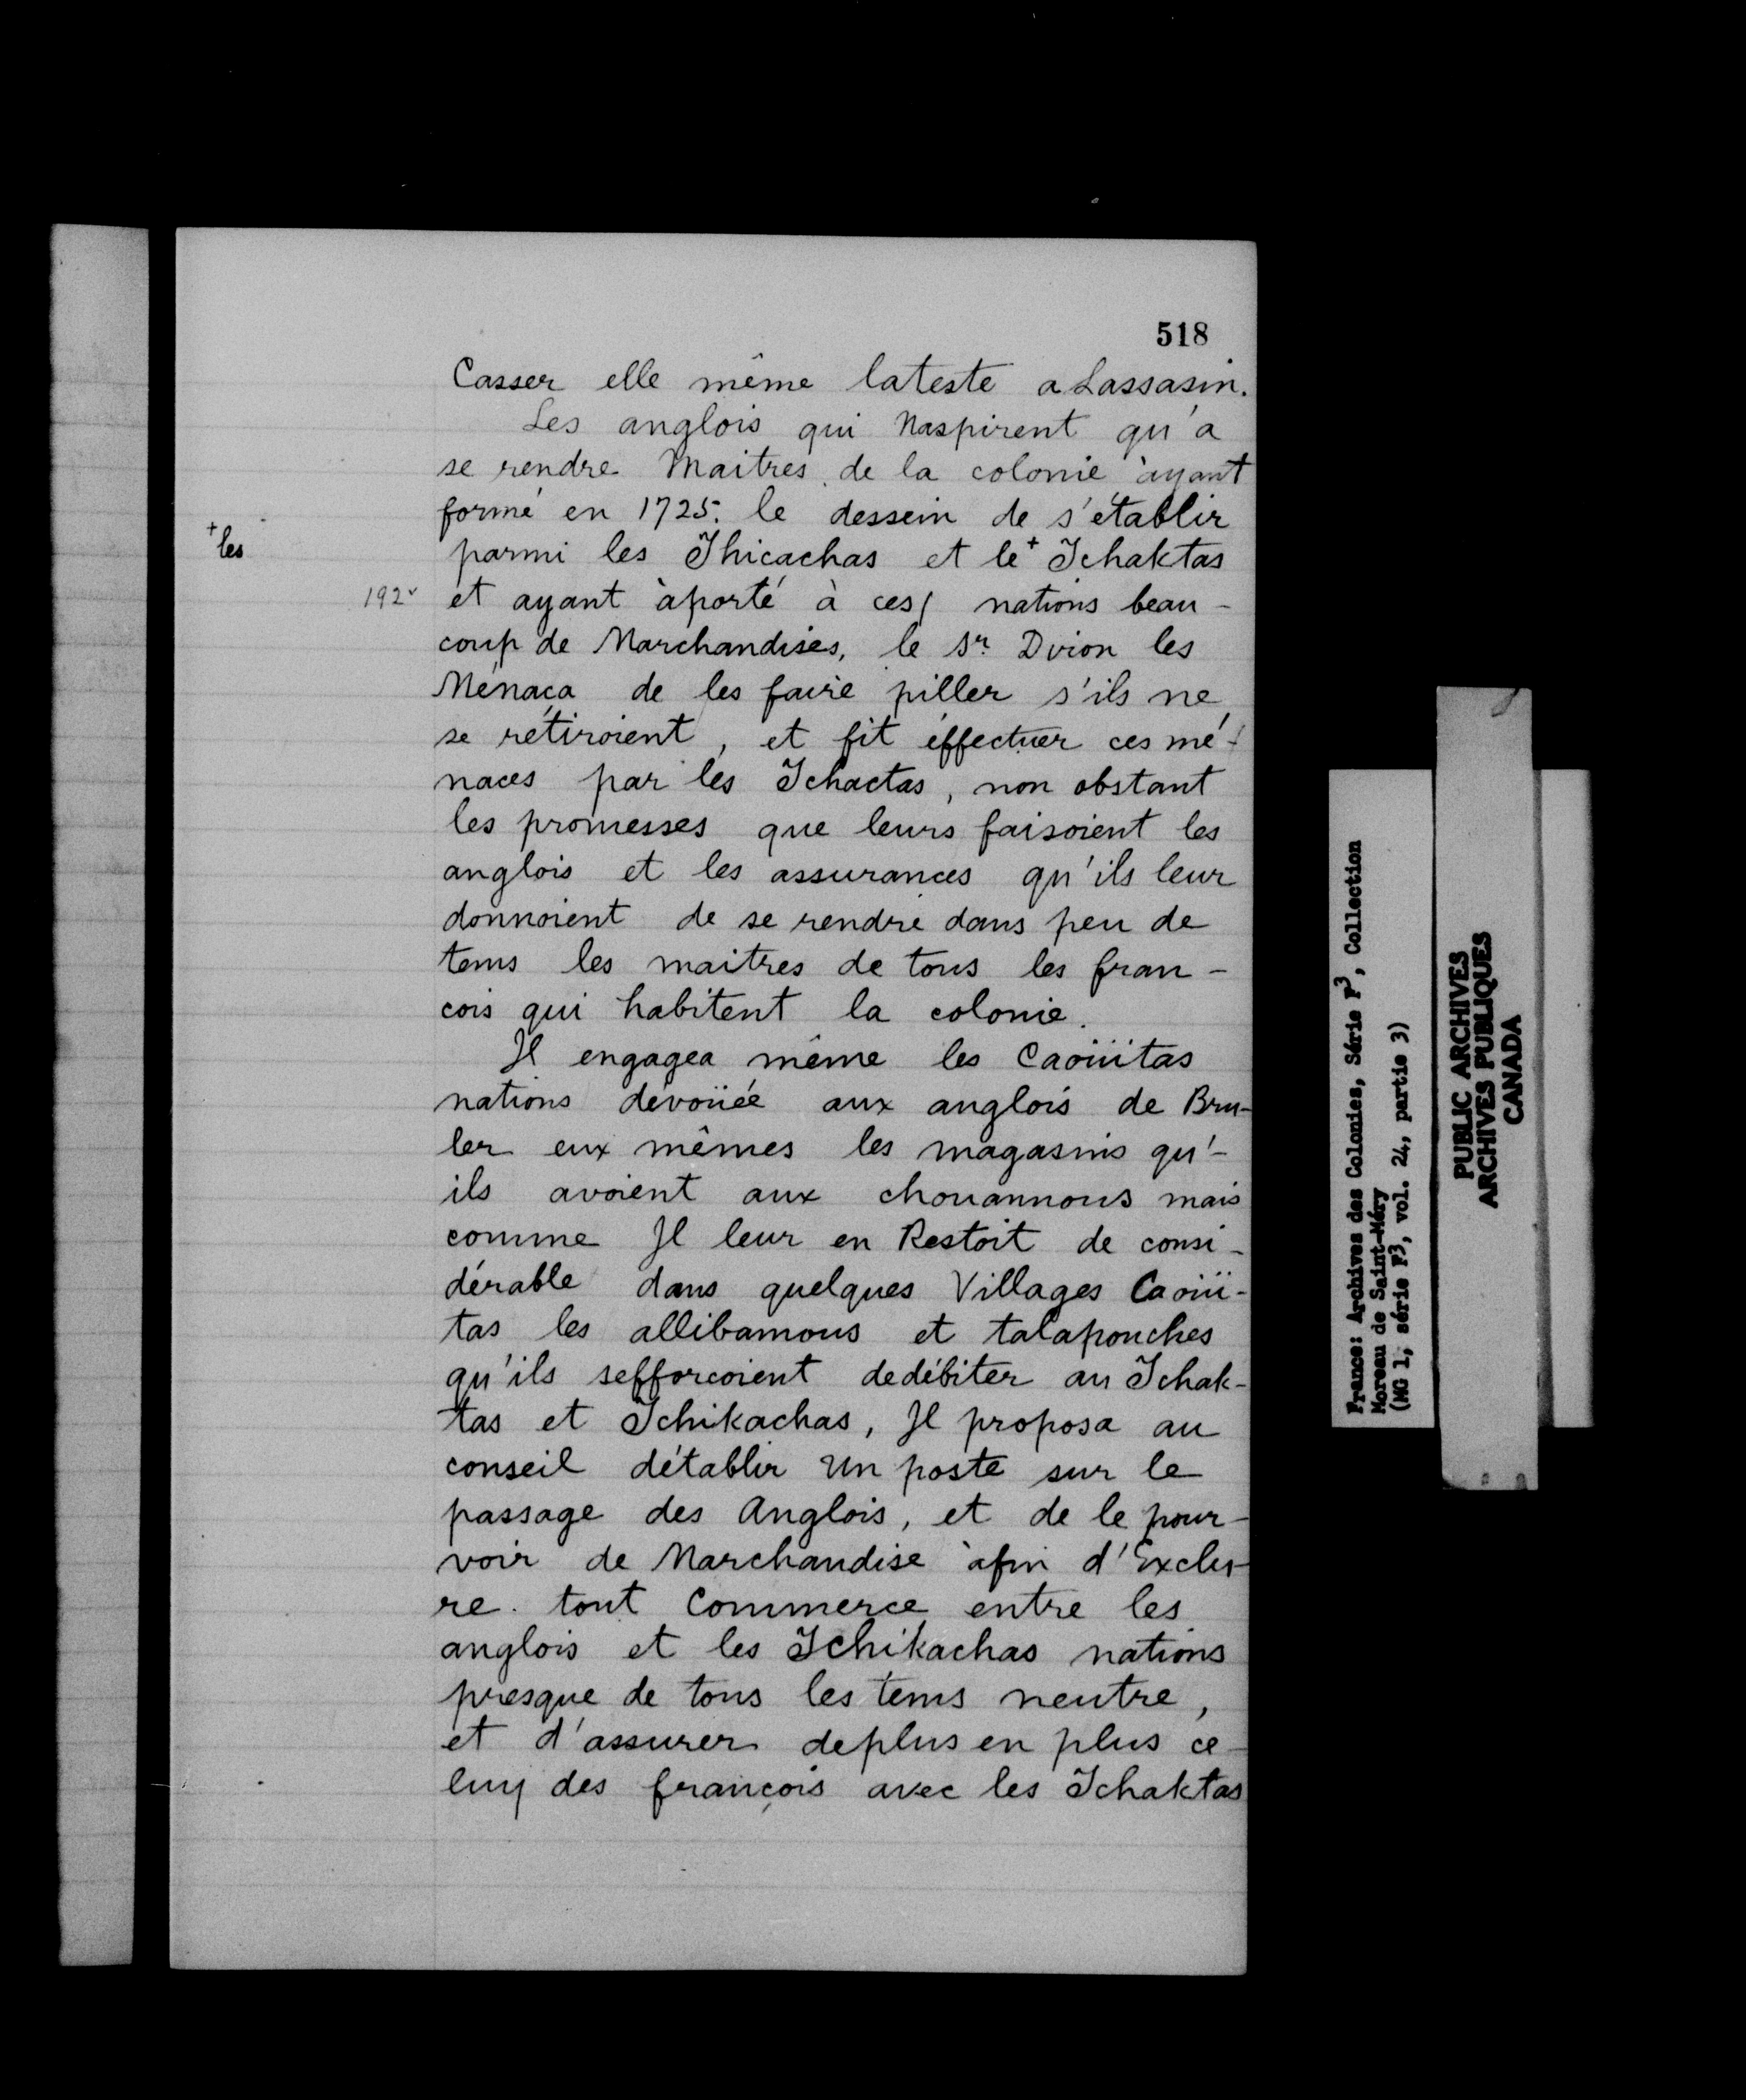 518
Casser elle même lateste a Lassasin.
Les anglois qui Naspirent qu'a
se rendre Maitres de la colonie àyant
formé en 1725. le dessein de s'établir
+les
parmi les Thicachas et le+ Tchaktas
192v
et ayant àporté à ces/ nations beau-
coup de Marchandises, le Sr. Diron les
Ménaça de les faire piller s'ils ne
se rétiroient, et fit éffectuer ces mé-
naces par les Tchactas, non obstant
les promesses que leurs faisoient les
anglois et les assurances qu'ils leur
donnoient de se rendre dans peu de
tems les maitres de tous les fran-
cois qui habitent la colonie.
Il engagea même les Caoüitas
nations dévoüée aux anglois de Bru-
ler eux mêmes les magasins qu'-
ils avoient aux chouannous mais
comme Il leur en Restoit de consi-
dérable dans quelques Villages Caoüi-
tas les allibamous et talapouches
qu'ils sefforcoient dedébiter au Tchak-
tas et Tchikachas, Il proposa au
conseil détablir Un poste sur le
passage des Anglois, et de le pour-
voir de Marchandise àfin d'Exclu-
re tout Commerce entre les
anglois et les Tchikachas nations
presque de tous les tems neutre,
et d'assurer deplus en plus ce-
luy des françois avec les Tchaktas
France: Archives des Colonies, Série F3, Collection
Moreau de Saint-Méry
(MG 1, série F3, vol. 24, partie 3)
PUBLIC ARCHIVES
ARCHIVES PUBLIQUES
CANADA